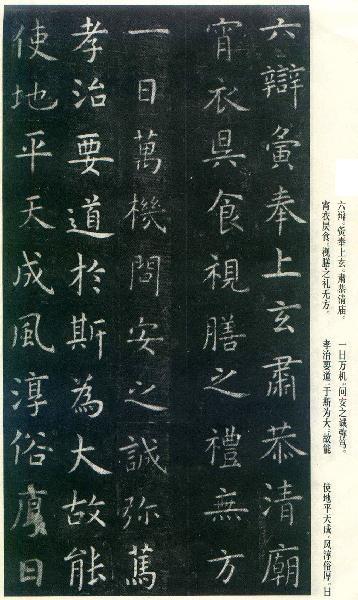 六辯夤奉上玄肅恭清廟
宵衣昃食視膳之禮無方
一日萬機問安之誠弥篤
孝治要道於斯為大故能
使地平天成風淳俗厚日
六辩,夤奉上玄,肃恭清庙。
宵衣昃食,视膳之礼无方,
一日万机,问安之诚弥笃。
孝治要道,于斯为大。故能
使地平天成,风淳俗厚。日